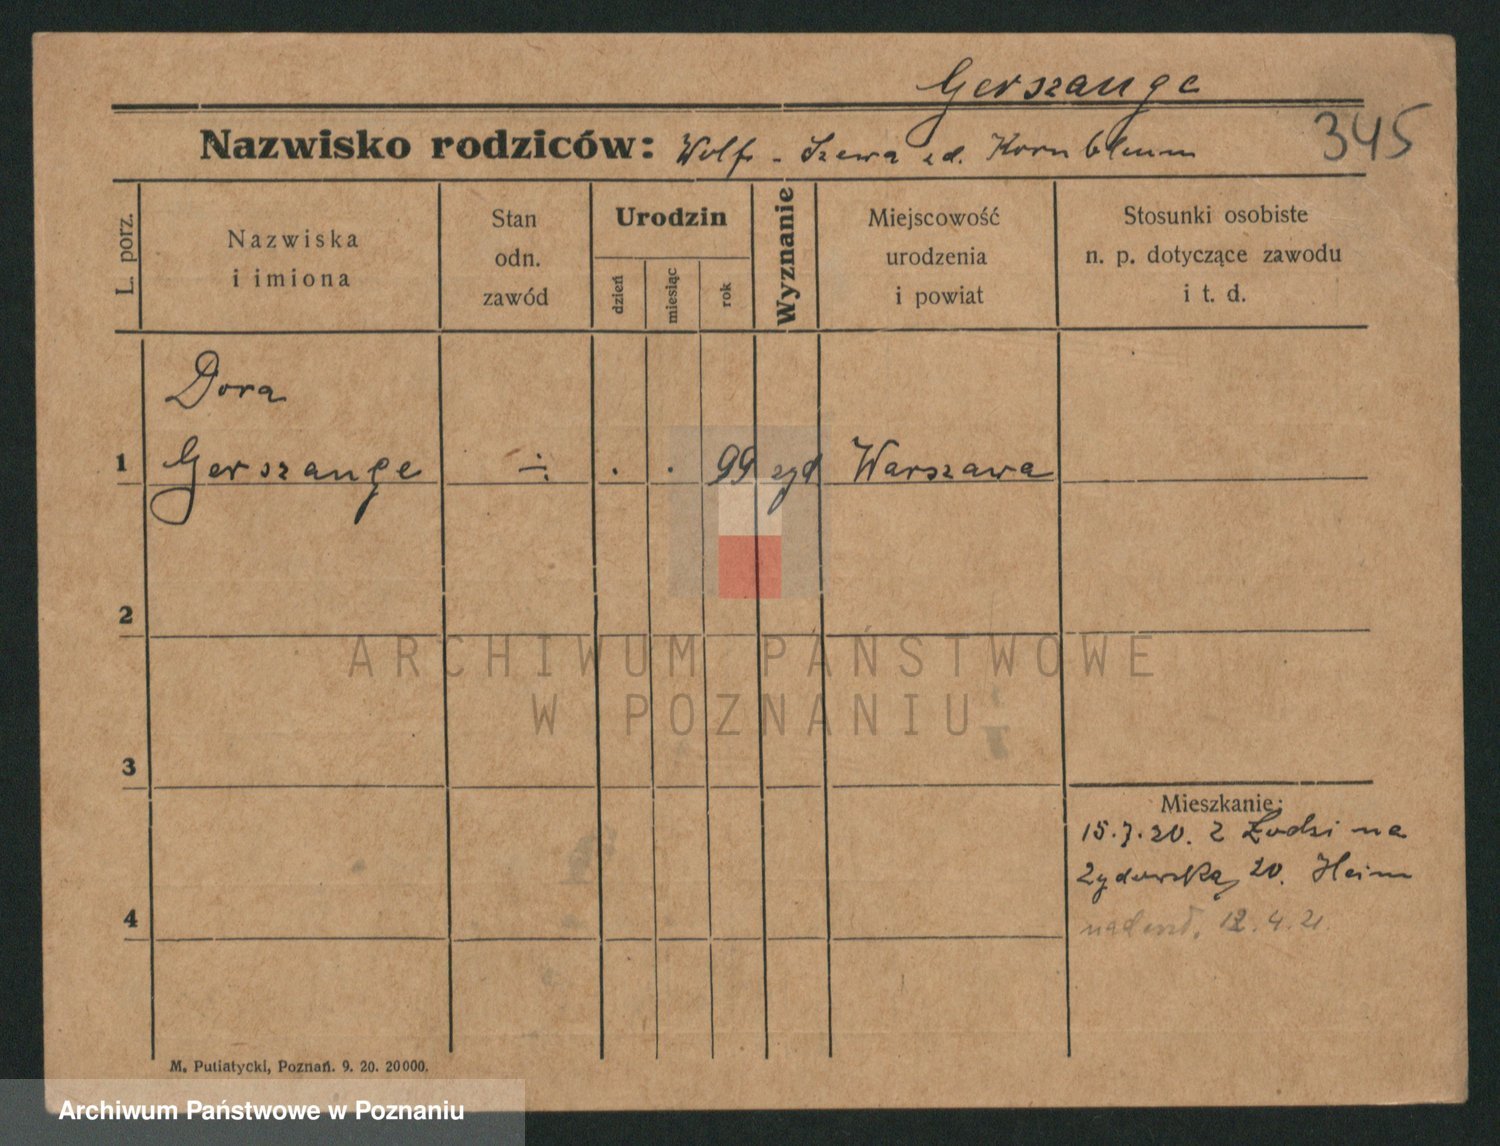 Gerszange
345
Nazwisko rodziców: Wolf - Szewa zd. Kornblum
L. porz.
Nazwiska
i imiona
Stan
odn.
zawód
Urodzin
dzień
miesiąc
rok
Wyznanie
Miejscowość
urodzenia
i powiat
Stosunki osobiste
n. p. dotyczące zawodu
i t. d.
Dora
1 Gerszange ÷ . . 99 żyd Warszawa
2
ARCHIWUM PAŃSTWOWE
W POZNANIU
3
Mieszkanie:
15.7.20. z Łodzi na
Żydowską 20. Heim
4
12.4.21.
M. Putiatycki, Poznań. 9. 20. 20000.
Archiwum Państwowe w Poznaniu